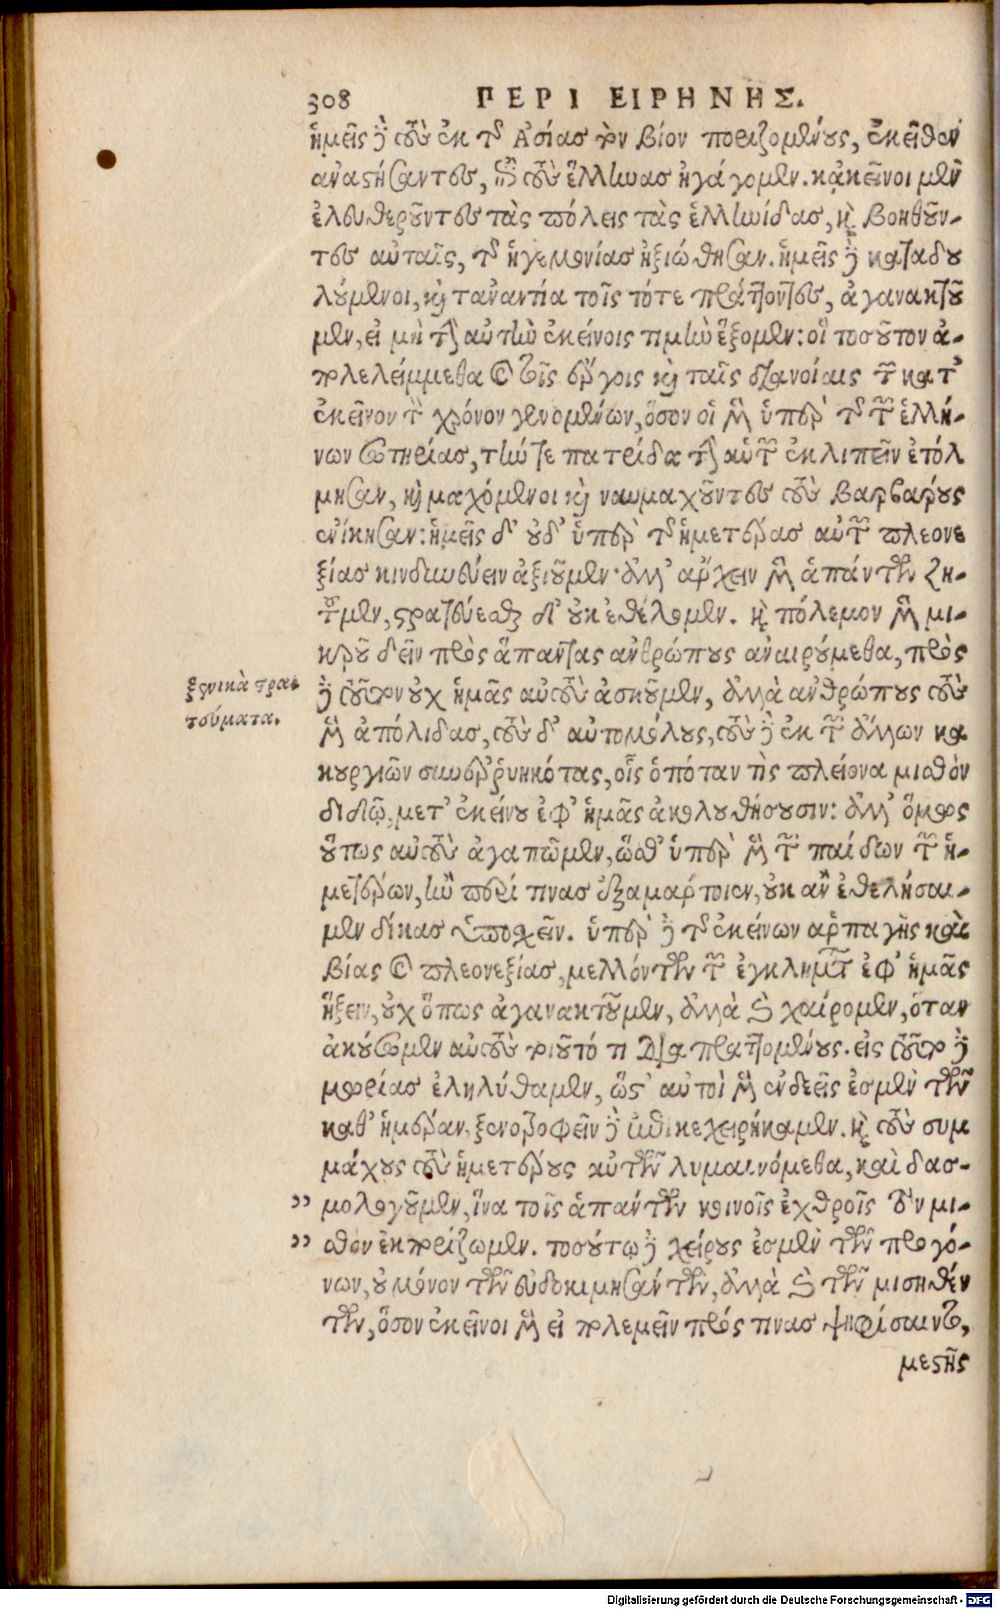 308 ΠΕΡΙ ΕΙΡΗΝΗΣ.
ἡμεῖς δὲ τοὺς ἐκ τῆς Ἀσίας τὸν βίον ποριζομένους, ἐκεῖθεν
ἀναστήσαντες, ὡς τοὺς ἕλληνας ἠγάγομεν. κἀκεῖνοι μὲν
ἐλευθεροῦντες τὰς πόλεις τὰς ἑλληνίδας, καὶ βοηθοῦν-
τες αὐταῖς, τῆς ἡγεμονίας ἠξιώθησαν. ἡμεῖς δὲ καταδου
λούμενοι, καὶ τἀναντία τοῖς τότε πράττοντες, ἀγανακτοῦ
μεν, εἰ μὴ τὴν αὐτὴν ἐκείνοις τιμὴν ἕξομεν: οἳ τοσοῦτον ἀ-
πολελείμμεθα καὶ τοῖς ἔργοις καὶ ταῖς διανοίαις τῶν κατ'
ἐκεῖνον τὸν χρόνον γενομένων, ὅσον οἱ μὲν ὑπὲρ τῆς τῶν ἑλλή-
νων σωτηρίας, τήν τε πατρίδα τὴν αὑτῶν ἐκλιπεῖν ἐτόλ
μησαν, καὶ μαχόμενοι καὶ ναυμαχοῦντες τοὺς βαρβάρους
ἐνίκησαν: ἡμεῖς δ' οὐδ' ὑπὲρ τῆς ἡμετέρας αὐτῶν πλεονε
ξίας κινδυνεύειν ἀξιοῦμεν· ἀλλ' ἄρχειν μὲν ἁπάντων ζη-
τοῦμεν, στρατεύεσθαι δ' οὐκ ἐθέλομεν. καὶ πόλεμον μὲν μι-
κροῦ δεῖν πρὸς ἅπαντας ἀνθρώπους ἀναιρούμεθα, πρὸς
ξενικὰ στρα-
τεύματα.
δὲ τοῦτον οὐχ ἡμᾶς αὐτοὺς ἀσκοῦμεν, ἀλλὰ ἀνθρώπους τοὺς
μὲν ἀπόλιδας, τοὺς δ' αὐτομόλους, τοὺς δὲ ἐκ τῶν ἄλλων κα
κουργιῶν συνερρυηκότας, οἷς ὁπόταν τὶς πλείονα μισθὸν
διδῷ, μετ' ἐκείνου ἐφ' ἡμᾶς ἀκολουθήσουσιν: ἀλλ' ὅμως
οὕτως αὐτοὺς ἀγαπῶμεν, ὥσθ' ὑπὲρ μὲν τῶν παίδων τῶν ἡ-
μετέρων, ἢν περί τινας ἐξαμάρτοιεν, οὐκ ἂν ἐθελήσαι-
μεν δίκας ὑποσχεῖν. ὑπὲρ δὲ τῆς ἐκείνων ἁρπαγῆς καὶ
βίας καὶ πλεονεξίας, μελλόντων τῶν ἐγκλημάτων ἐφ' ἡμᾶς
ἥξειν, οὐχ ὅπως ἀγανακτοῦμεν, ἀλλὰ καὶ χαίρομεν, ὅταν
ἀκούσωμεν αὐτοὺς τοιοῦτό τι διαπραττομένους. εἰς τοῦτο δὲ
μωρίας ἐληλύθαμεν, ὥστ' αὐτοὶ μὲν ἐνδεεῖς ἐσμὲν τῶν
καθ' ἡμέραν, ξενοτροφεῖν δὲ ἐπικεχειρήκαμεν. καὶ τοὺς συμ
μάχους τοὺς ἡμετέρους αὐτῶν λυμαινόμεθα, καὶ δασ-
" μολογοῦμεν, ἵνα τοῖς ἁπάντων κοινοῖς ἐχθροῖς τὸν μι-
" σθὸν ἐκπορίζωμεν. τοσούτῳ δὲ χείρους ἐσμὲν τῶν προγό-
νων, οὐ μόνον τῶν εὐδοκιμησάντων, ἀλλὰ καὶ τῶν μισηθέν
των, ὅσον ἐκεῖνοι μὲν εἰ πολεμεῖν πρός τινας ψηφίσαιντο,
μεστῆς
Digitalisierung gefördert durch die Deutsche Forschungsgemeinschaft - DFG